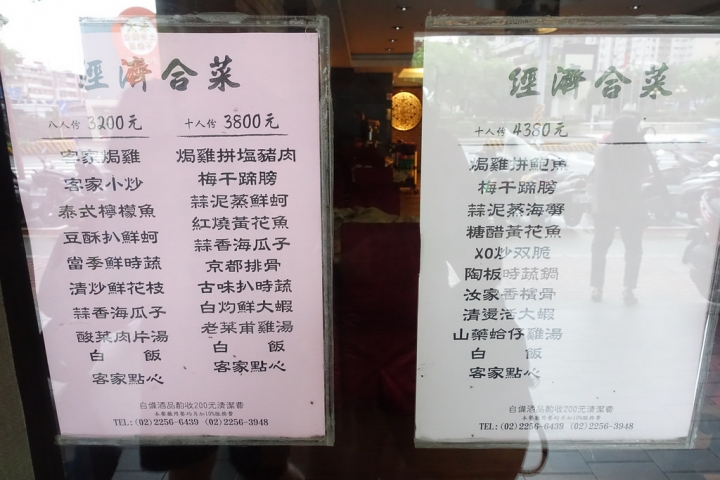 經濟合菜
八人份 3200元
客家焗雞
客家小炒
泰式檸檬魚
豆酥扒鮮蚵
當季鮮時蔬
清炒鮮花枝
蒜香海瓜子
酸菜肉片湯
白 飯
客家點心
十人份 3800元
焗雞拼塩豬肉
梅干蹄膀
蒜泥蒸鮮蚵
紅燒黃花魚
蒜香海瓜子
京都排骨
古味扒時蔬
白灼鮮大蝦
老菜甫雞湯
白 飯
客家點心
自備酒品酌收200元清潔費
本餐廳用餐均另加10%服務費
TEL: (02) 2256-6439 (02) 2256-3948
經濟合菜
十人份 4380元
焗雞拼鮑魚
梅干蹄膀
蒜泥蒸海蟹
糖醋黃花魚
XO炒双脆
陶板時蔬鍋
汝家香檳骨
清燙活大蝦
山藥蛤仔雞湯
白 飯
客家點心
自備酒品酌收200元清潔費
本餐廳用餐均另加10%服務費
TEL: (02) 2256-6439 (02) 2256-3948